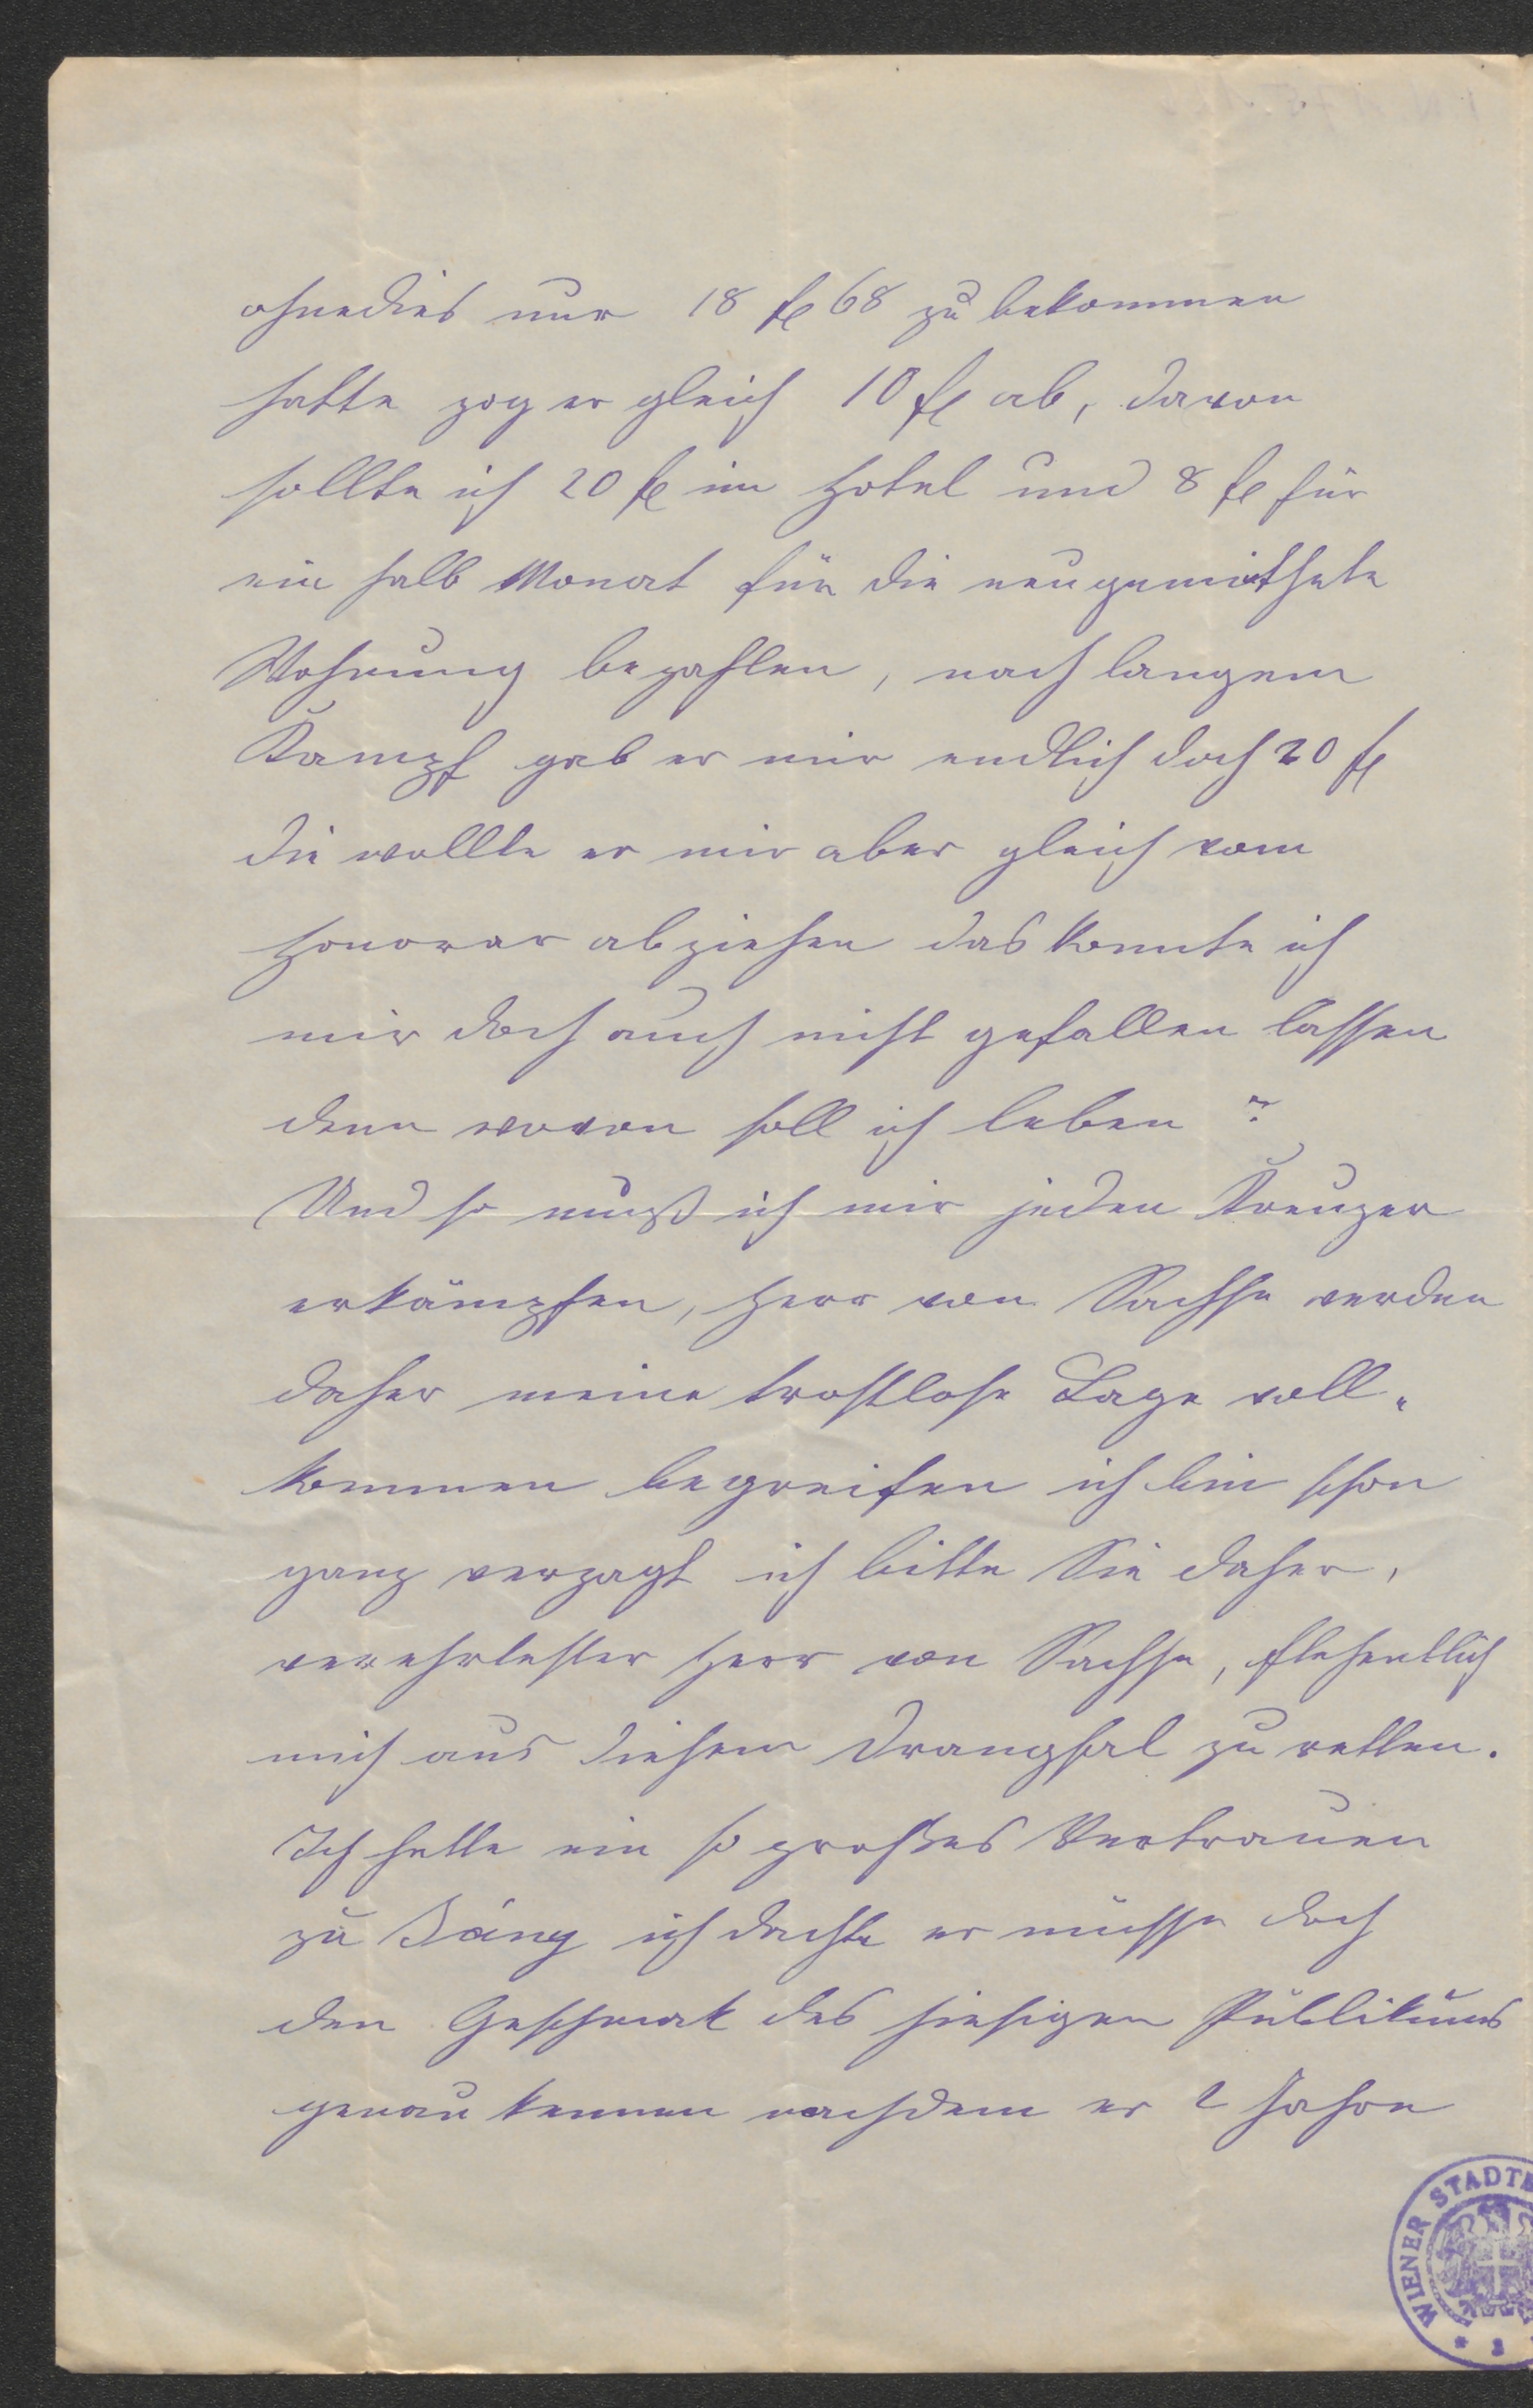 ohnedies nur 18 fl 68 zu bekommen
hatte zog er gleich 10 fl ab, davon
sollte ich 20 fl im Hotel und 8 fl für
ein halb Monat für die neugemiethete
Wohnung bezahlen, nach langem
Kampf gab er mir endlich doch 20 fl
die wollte er mir aber gleich vom
Honorar abziehen das konnte ich
mir doch auch nicht gefallen lassen
denn wovon soll ich leben?
Und so muß ich mir jeden Kreuzer
erkämpfen, Herr von Sachse werden
daher meine trostlose Lage voll-
kommen begreifen ich bin schon
ganz verzagt ich bitte Sie daher,
verehrtester Herr von Sachse, flehentlich
mich aus diesem Drangsal zu retten.
Ich hatte ein so großes Vertrauen
zu ich dachte er müsse doch
den Geschmak des hiesigen Publikums
genau kennen nachdem er 2 Jahre
WIENER STADT